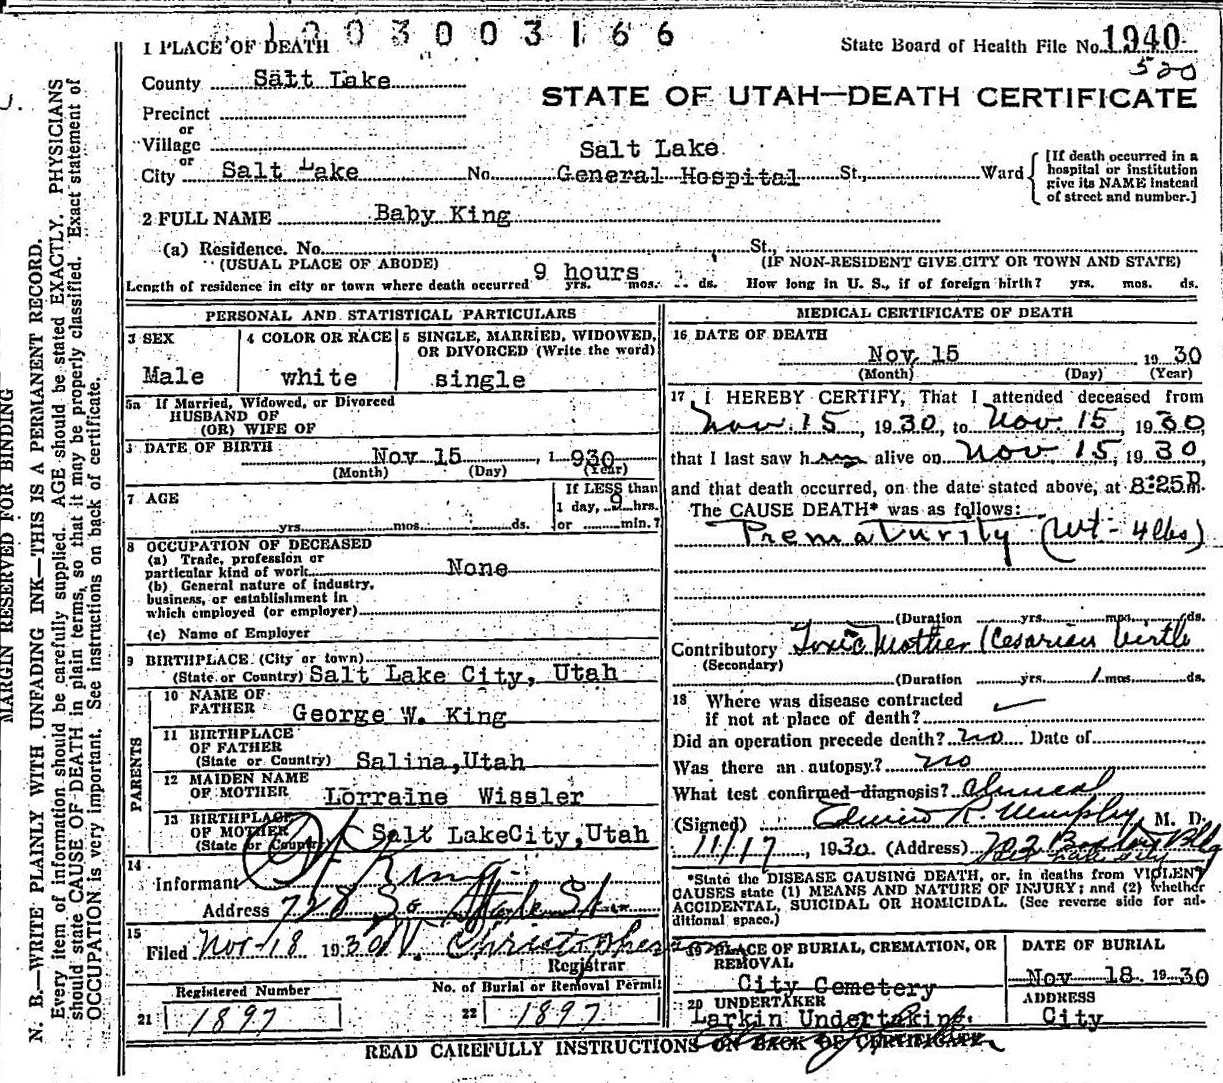 1003003166
1 PLACE OF DEATH
State Board of Health File No. 1940
520
County Salt Lake
STATE OF UTAH—DEATH CERTIFICATE
Precinct
or
Village
or
City Salt Lake No. Salt Lake General Hospital St., Ward
[If death occurred in a
hospital or institution
give its NAME instead
of street and number.]
2 FULL NAME Baby King
(a) Residence. No. St.,
(USUAL PLACE OF ABODE) (IF NON-RESIDENT GIVE CITY OR TOWN AND STATE)
Length of residence in city or town where death occurred 9 hours yrs. mos. ds. How long in U. S., if of foreign birth? yrs. mos. ds.
PERSONAL AND STATISTICAL PARTICULARS
3 SEX
Male
4 COLOR OR RACE
white
5 SINGLE, MARRIED, WIDOWED,
OR DIVORCED (Write the word)
single
5a If Married, Widowed, or Divorced
HUSBAND OF
(OR) WIFE OF
DATE OF BIRTH Nov 15, 1930
(Month) (Day) (Year)
7 AGE
yrs. mos. ds.
If LESS than
1 day, 9 hrs.
or min.?
8 OCCUPATION OF DECEASED
(a) Trade, profession or
particular kind of work None
(b) General nature of industry,
business, or establishment in
which employed (or employer)
(c) Name of Employer
9 BIRTHPLACE (City or town)
(State or Country) Salt Lake City, Utah
PARENTS
10 NAME OF
FATHER George W. King
11 BIRTHPLACE
OF FATHER
(State or Country) Salina,Utah
12 MAIDEN NAME
OF MOTHER Lorraine Wissler
13 BIRTHPLACE
OF MOTHER
(State or Country) Salt LakeCity,Utah
14
Informant King
Address 728 So State St.
15
Filed Nov-18 1930 Christopherson
Registrar
Registered Number
21 1897
No. of Burial or Removal Permit
22 1897
MEDICAL CERTIFICATE OF DEATH
16 DATE OF DEATH
Nov 15 1930
(Month) (Day) (Year)
17 I HEREBY CERTIFY, That I attended deceased from
Nov. 15, 1930, to Nov. 15, 1930,
that I last saw him alive on Nov. 15, 1930,
and that death occurred, on the date stated above, at 8:25P m.
The CAUSE DEATH* was as follows:
Prematurity (Wt - 4 lbs)
(Duration yrs. mos. ds.
Contributory Toxic Mother (Cesarian birth
(Secondary)
(Duration yrs. 1 mos. ds.
18 Where was disease contracted
if not at place of death?
Did an operation precede death? no Date of
Was there an autopsy? no
What test confirmed diagnosis? Clinical
(Signed) Edwin R. Murphy, M. D.
11/17, 1930. (Address) 702 Bldg
Salt Lake City
*State the DISEASE CAUSING DEATH, or, in deaths from VIOLENT
CAUSES state (1) MEANS AND NATURE OF INJURY; and (2) whether
ACCIDENTAL, SUICIDAL OR HOMICIDAL. (See reverse side for ad-
ditional space.)
19 PLACE OF BURIAL, CREMATION, OR
REMOVAL
City Cemetery
DATE OF BURIAL
Nov 18 1930
20 UNDERTAKER
Larkin Undertaking.
ADDRESS
City
READ CAREFULLY INSTRUCTIONS ON BACK OF CERTIFICATE
MARGIN RESERVED FOR BINDING
N. B.—WRITE PLAINLY WITH UNFADING INK—THIS IS A PERMANENT RECORD.
Every item of information should be carefully supplied. AGE should be stated EXACTLY. PHYSICIANS
should state CAUSE OF DEATH in plain terms, so that it may be properly classified. Exact statement of
OCCUPATION is very important. See instructions on back of certificate.